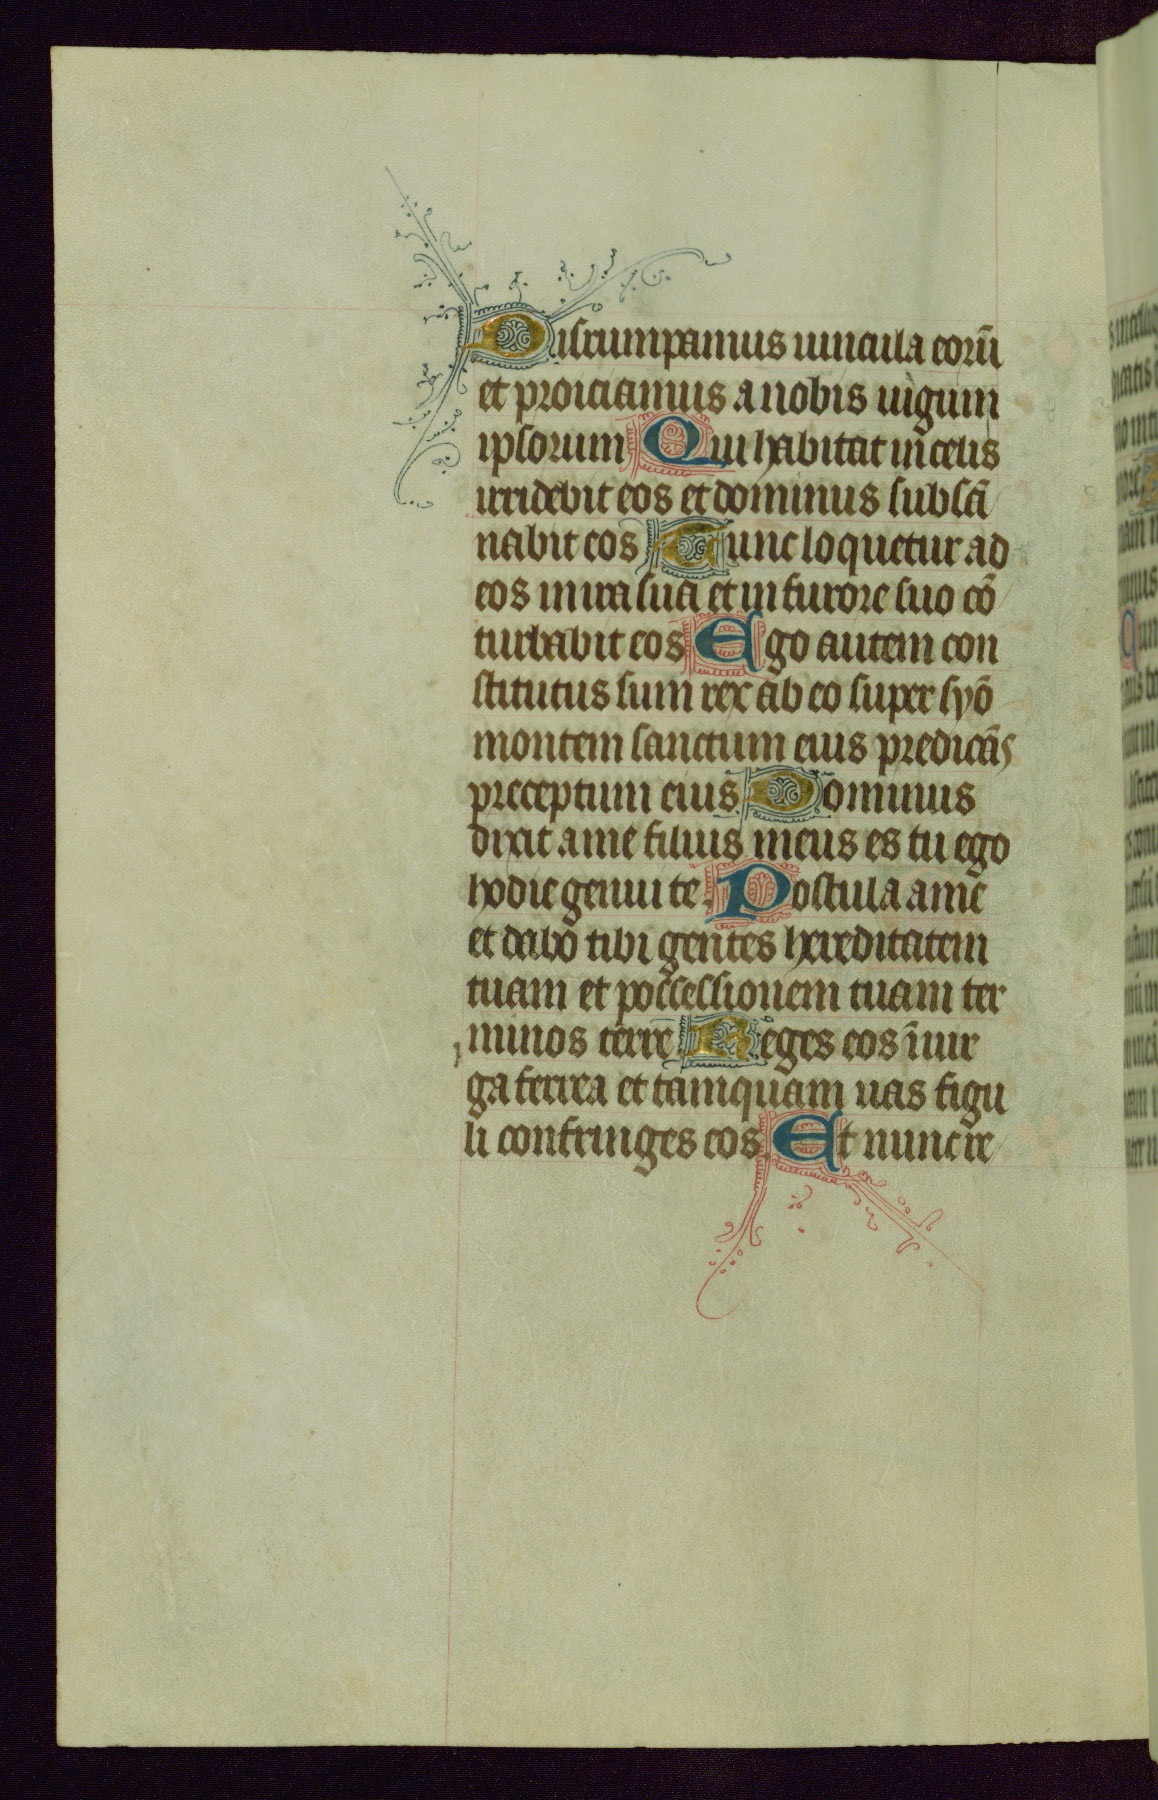 Disrumpamus uincula eorū
et proiciamus a nobis iugum
ipsorum Qui habitat in celis
irridebit eos et dominus subsā
nabit eos Tunc loquetur ad
eos in ira sua et in furore suo cō
turbabit eos Ego autem con
stitutus sum rex ab eo super syō
montem sanctum eius predicās
preceptum eius Dominus
dixit ame filius meus es tu ego
hodie genui te Postula a me
et dabo tibi gentes hereditatem
tuam et possessionem tuam ter
minos terre Reges eos ī uir
ga ferrea et tamquam uas figu
li confringes eos Et nunc re